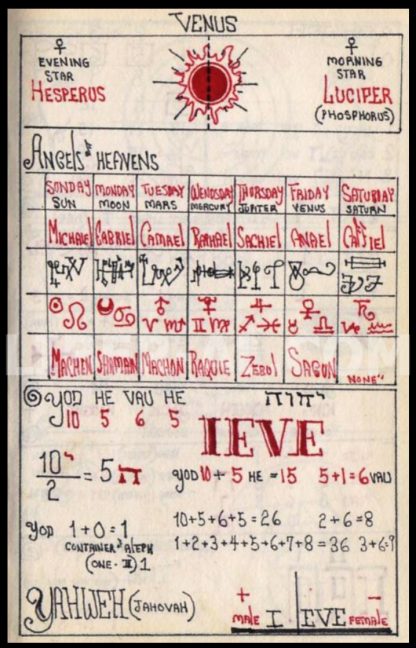 VENUS
♀ ♀
EVENING STAR HESPERUS
MORNING STAR LUCIPER (PHOSPHORUS)
ANGELS & HEAVENS
SUNDAY MONDAY TUESDAY WENDSDAY THURSDAY FRIDAY SATURDAY
SUN MOON MARS MERCURY JUPITER VENUS SATURN
MICHAEL GABRIEL CAMAEL RAPHAEL SACHIEL ANAEL CASSIEL
☉♌ ☽♋ ♂♈♏ ☿♊♍ ♃♐♓ ♀♉♎ ♄♑♒
MACHEN SHAMAN MACHON RAQUIE ZEBOL SAGUN "NONE"
YOD HE VAU HE
10 5 6 5
יהוה
IEVE
10 י/2 = 5 ה
YOD 10 + 5 HE = 15 5+1=6 VAU
10+5+6+5=26 2+6=8
1+2+3+4+5+6+7+8=36 3+6=9
YOD 1+0=1
CONTAINER & ALEPH
(ONE - II) 1
YAHWEH (JAHOVAH)
+ −
MALE I EVE FEMALE